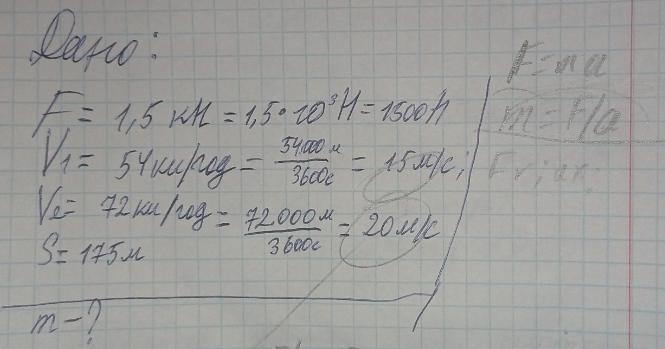 Дано:
F = 1,5 кН = 1,5 · 10³ Н = 1500 Н
V₁ = 54 км/год = 54000 м / 3600 с = 15 м/с;
V₂ = 72 км/год = 72000 м / 3600 с = 20 м/с
S = 175 м
m - ?
F = ma
m = F/a